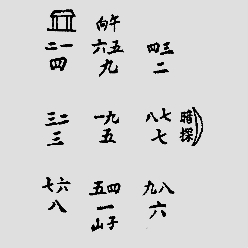 向午
二一 六五 四三
四 九 二
三二 一九 八七 暗探
三 五 七
七六 五四 九八
八 一 六
山子